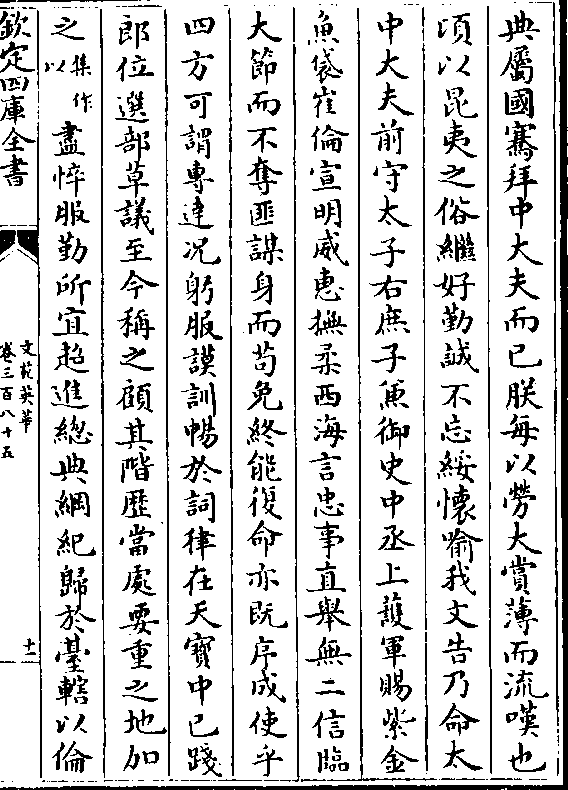 典屬國騫拜中大夫而已朕每以勞大賞薄而流嘆也
頃以昆夷之俗繼好勤誠不忘綏懷喻我文告乃命太
中大夫前守太子右庶子兼御史中丞上護軍賜紫金
魚袋崔倫宣明威惠撫柔西海言忠事直舉無二信臨
大節而不奪匪謀身而苟免終能復命亦既序成使乎
四方可謂專達况躬服謨訓暢於詞律在天寶中已踐
郎位選部草議至今稱之顧其階歴當處要重之地加
之集作以盡悴服勤所宜超進總典綱紀歸於臺轄以倫
欽定四庫全書
文苑英華
卷三百八十五
十一